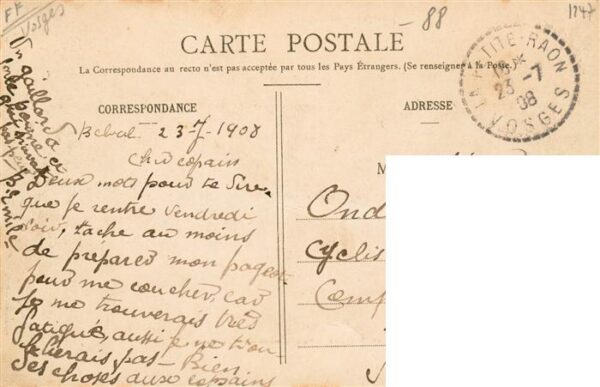 FF
Vosges
-88
1247
CARTE POSTALE
La Correspondance au recto n'est pas acceptée par tous les Pays Étrangers. (Se renseigner à la Poste.)
CORRESPONDANCE
ADRESSE
LA PETITE-RAON
23 -7
08
VOSGES
23-7-1908
cher copain
Deux mots pour te dire
que je rentre vendredi
soir, tache au moins
de préparer mon paquet
pour me coucher, car
je me trouverais très
fatigué, aussi je ne
pas - Bien
des choses aux copains
Un gaillard
M
Ond
Cyclis
Comp